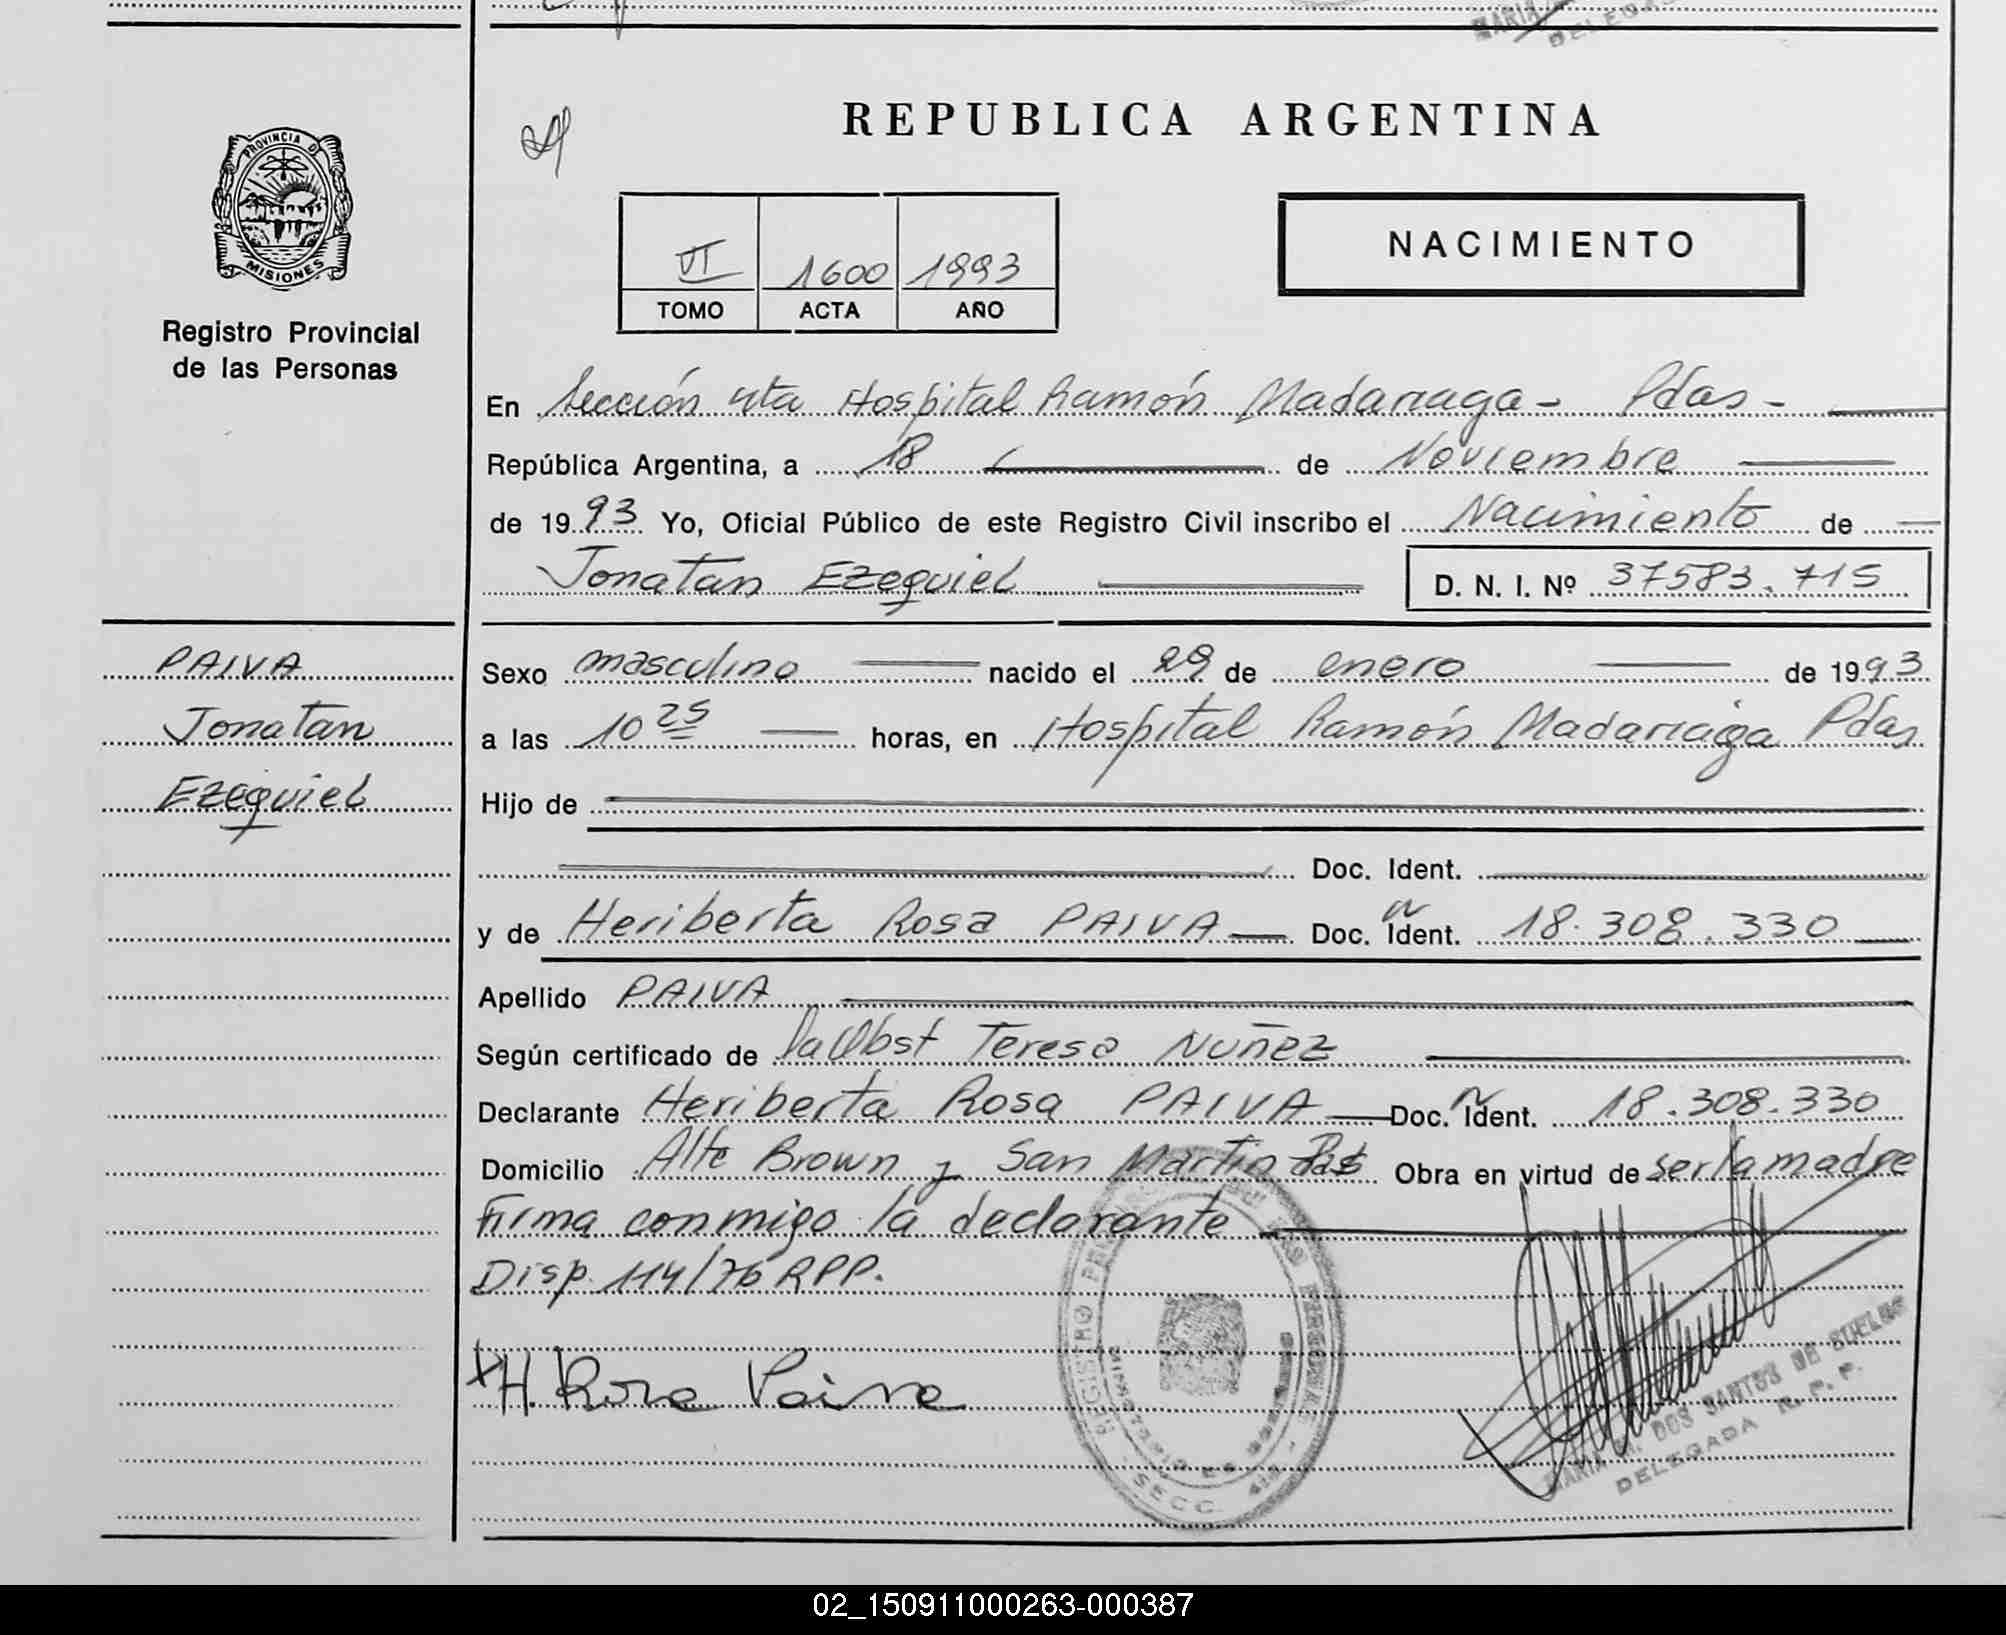 MARIA
DELEGADA
REPUBLICA ARGENTINA
PROVINCIA DE
MISIONES
Registro Provincial
de las Personas
VI 1600 1993
TOMO ACTA AÑO
NACIMIENTO
En Sección 4ta Hospital Ramón Madariaga - Pdas -
República Argentina, a 18 de Noviembre
de 1993 Yo, Oficial Público de este Registro Civil inscribo el Nacimiento de
Jonatan Ezequiel D. N. I. Nº 37583.715
PAIVA
Jonatan
Ezequiel
Sexo masculino nacido el 29 de enero de 1993
a las 10 25 horas, en Hospital Ramón Madariaga Pdas
Hijo de
Doc. Ident.
y de Heriberta Rosa PAIVA Doc. Ident. 18.308.330
Apellido PAIVA
Según certificado de la Obst Teresa Nuñez
Declarante Heriberta Rosa PAIVA Doc. Ident. 18.308.330
Domicilio Alte Brown y San Martin Pdas Obra en virtud de ser la madre
Firma conmigo la declarante
Disp. 114/76 RPP.
H. Rosa Paiva
REGISTRO
SECC. 4ta
MARIA M. DOS SANTOS DE
DELEGADA R. P. P.
02_150911000263-000387